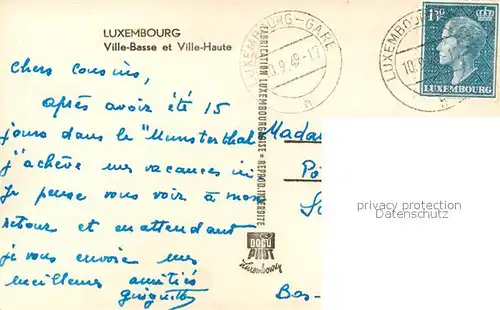 LUXEMBOURG
Ville-Basse et Ville-Haute
Chers cousins,
après avoir été 15
jours dans le "Munsterthal
j'achève mes vacances ici
Je pense vous voir à mon
retour et en attendant
je vous envoie mes
meilleures amitiés
FABRICATION LUXEMBOURGEOISE = REPROD. INTERDITE
DOGU
PHOT
Luxembourg
LUXEMBOURG-GARE
.9.49-17
LUXEMBOU
10.
1F50
LUXEMBOURG
Madam
Bas-
privacy protection
Datenschutz